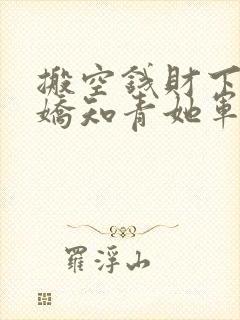 搬空錢財下
嬌知青她軍
羅浮山